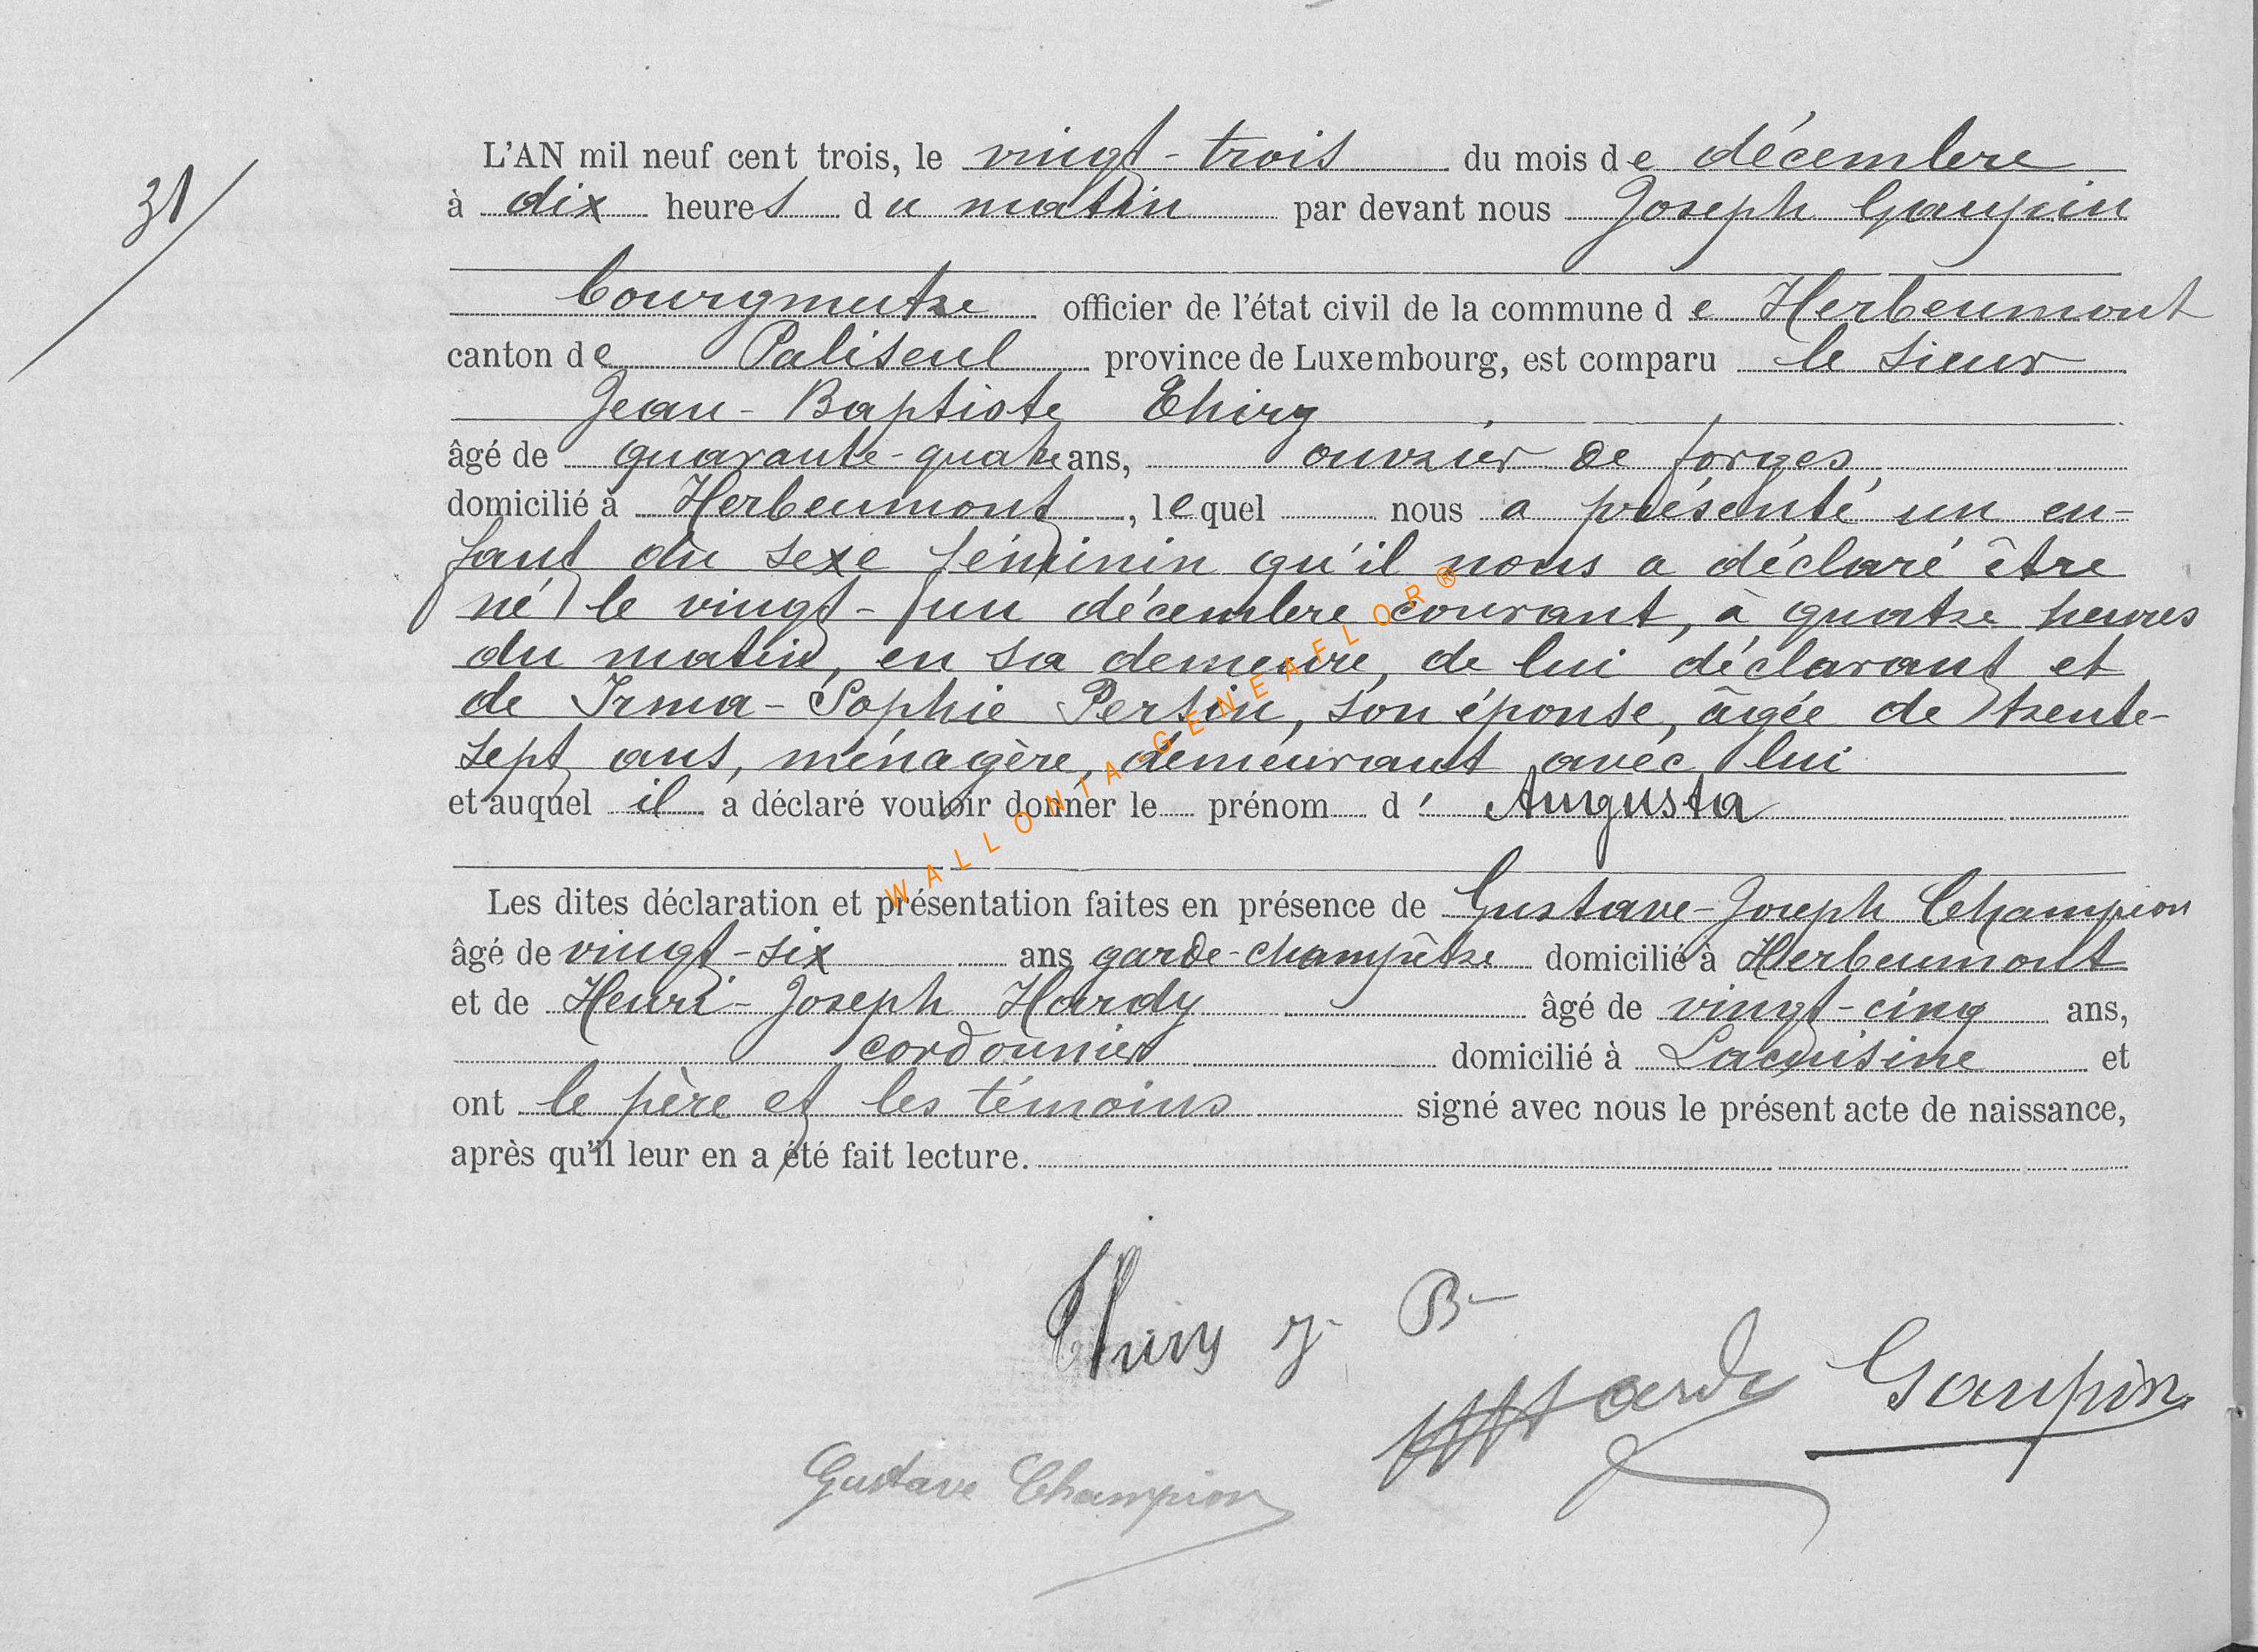 31
L'AN mil neuf cent trois, le vingt-trois du mois de décembre
à dix heures du matin par devant nous Joseph Gaupin
bourgmestre officier de l'état civil de la commune de Herbeumont
canton de Paliseul province de Luxembourg, est comparu le sieur
Jean-Baptiste Thiry
âgé de quarante-quatre ans, ouvrier de forges
domicilié à Herbeumont, lequel nous a présenté un en-
fant du sexe féminin qu'il nous a déclaré être
né le vingt-un décembre courant, à quatre heures
du matin, en sa demeure, de lui déclarant et
de Irma-Sophie Persin, son épouse, âgée de trente-
sept ans, ménagère, demeurant avec lui
et auquel il a déclaré vouloir donner le prénom d'Augusta
WALLONIA-GENEAFLOR®
Les dites déclaration et présentation faites en présence de Gustave-Joseph Champion
âgé de vingt-six ans garde-champêtre domicilié à Herbeumont
et de Henri-Joseph Hardy âgé de vingt-cinq ans,
cordonnier domicilié à Lacuisine et
ont le père et les témoins signé avec nous le présent acte de naissance,
après qu'il leur en a été fait lecture.
Thiry J. B
Hardy Gaupin
Gustave Champion